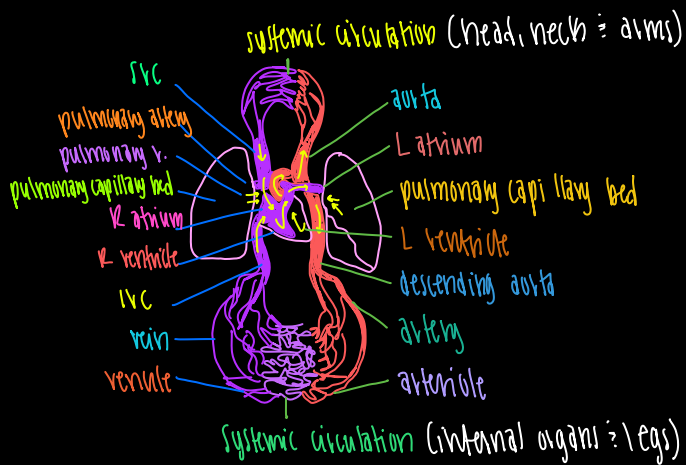 systemic circulation (head, neck & arms)
SVC
pulmonary artery
pulmonary v.
pulmonary capillary bed
R atrium
R ventricle
IVC
vein
venule
aorta
L atrium
pulmonary capillary bed
L ventricle
descending aorta
artery
arteriole
systemic circulation (internal organs & legs)